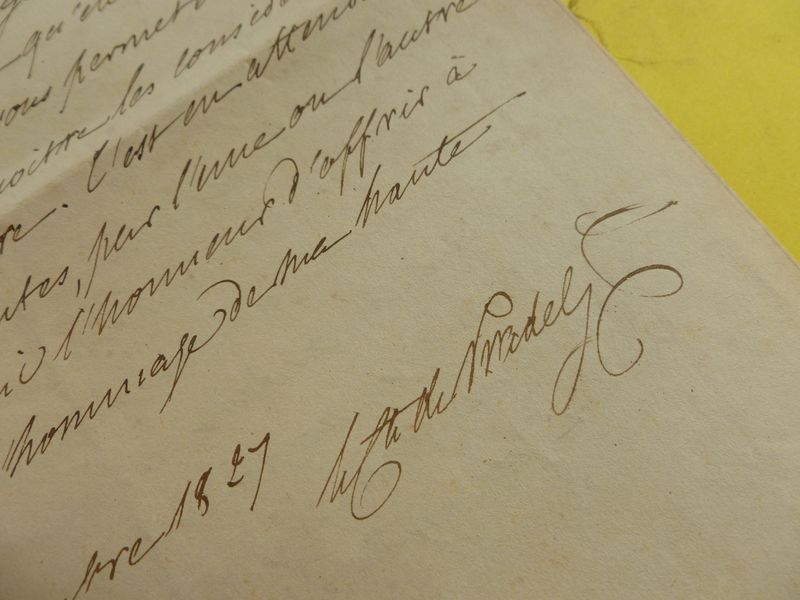 qu'en
vous permet
les consid
re. C'est en attend
utes, par l'une ou l'autre
l'honneur d'offrir à
hommage de ma haute
bre 1827 le Cte de